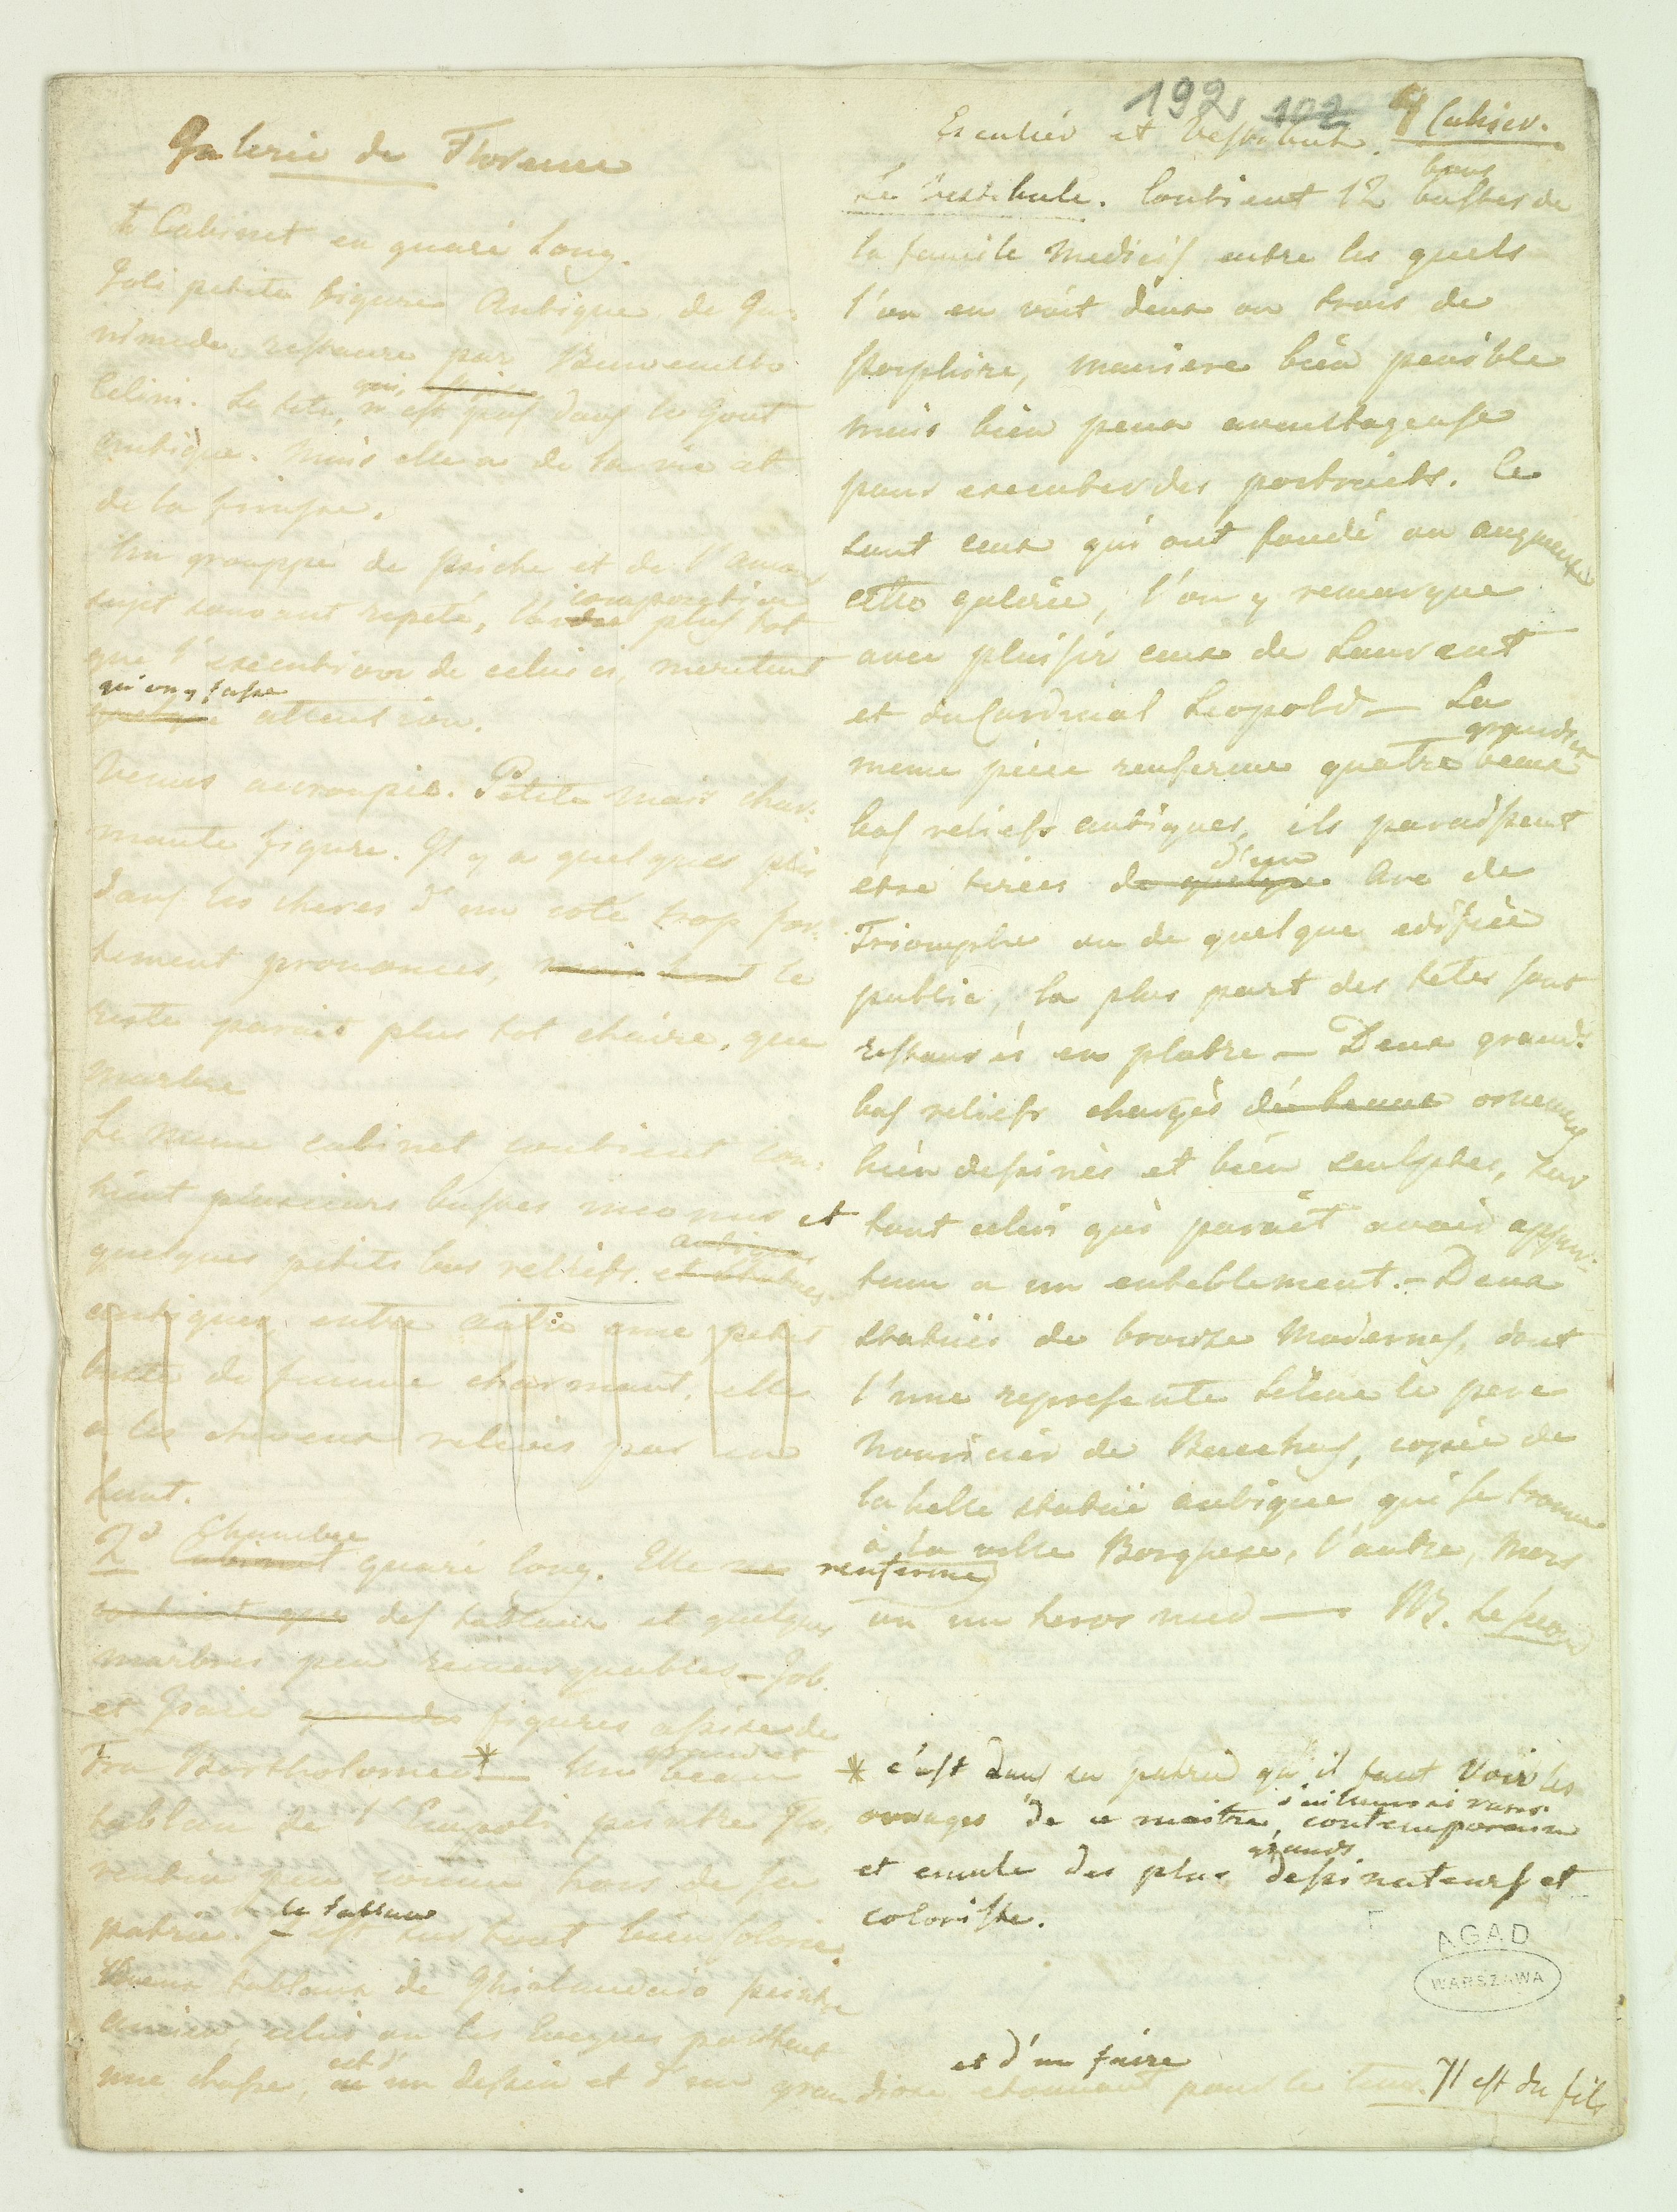 192 102
4 Cahier.
Galerie de Florence
t Cabinet en quaré long.
Joli petite figure Antique de Ga-
nimede, restaure par Benvenutto
Celini. La tete, n'est pas dans le Gout
antique. Mais elle a de la vie et
de la finesse.
Un grouppe de psiche et de l'amour
composition
sujet souvent repeté, plus tot
que l'execution de celui ci, meritent
qu'on y fasse
quelque attention.
Venus accroupie. Petite mais char-
mante figure. Il y a quelques plis
dans les cheres d'un coté trop for-
tement prononcés, mais tout le
reste parait plus tot chaire, que
marbre
Le meme cabinet contient con-
tient plusieurs bustes inconnus et
antiques
quelques petits bas reliefs et statues
antiques, entre autre une petit
buste de femme charmant, elle
a les cheveux relevés par en
haut.
Chambre
2d Cabinet quaré long. Elle ne renferme
contient que des tableaux et quelques
marbres peu remarquables – Job.
et Isaie grandes figures assise de
Fra Bartholomeo * – Un beau
grand et
tableau de l'Empoli peintre Flo-
rentin peu connu hors de sa
patrie. le tableau est sur tout bien colorié.
Deux tableaux de Ghirlandaio peintre
ancien, celui ou les Eveques portent
est d'
une chasse, un dessin et d'un grandiose etonnant pour le tems. Il est du fils
et d'un faire
Escalier et Vestibule.
bons
Le Vestibule. Contient 12 bustes de
la famile Medicis entre les quels
l'on en voit deux ou trois de
porphire, maniere bien penible
mais bien peux avantageuse
pour executer des portraits. Ce
sont ceux qui ont fondé ou augmenté
cette galerie, l'on y remarque
avec plaisir ceux de Laurent
et du Cardinal Leopold – La
grands et
meme piece renferme quatre beaux
bas reliefs antiques, ils paraissent
d'un
etre tirées de quelque Arc de
Triomphe ou de quelque edifice
public, la plus part des tetes sont
restaurés en platre – Deux grands
bas reliefs chargés de beaux ornemens
bien dessinés et bien sculptes, sur
tout celui qui parait avoir appar-
tenu a un entablement. – Deux
statues de bronze Modernes, dont
l'une represente Silene le pere
nouricier de Bacchus, copiée de
la belle statue antique qui se trouve
à la ville Borghese, l'autre, Mars
ou un heros nud –
* c'est dans sa patrie qu'il faut Voir les
ouvrages de ce maitre, contemporain
grands
et emule des plus dessinateurs et
coloriste.
AGAD
WARSZAWA